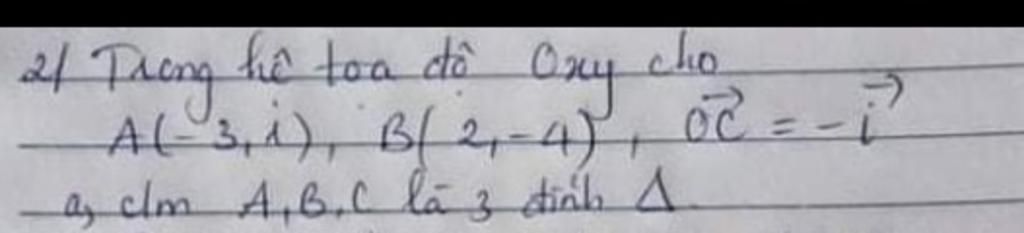 2/ Trong hệ tọa độ Oxy cho
A(-3,1), B(2,-4), \vec{OC} = -\vec{i}
a, c/m A,B,C là 3 đỉnh Δ